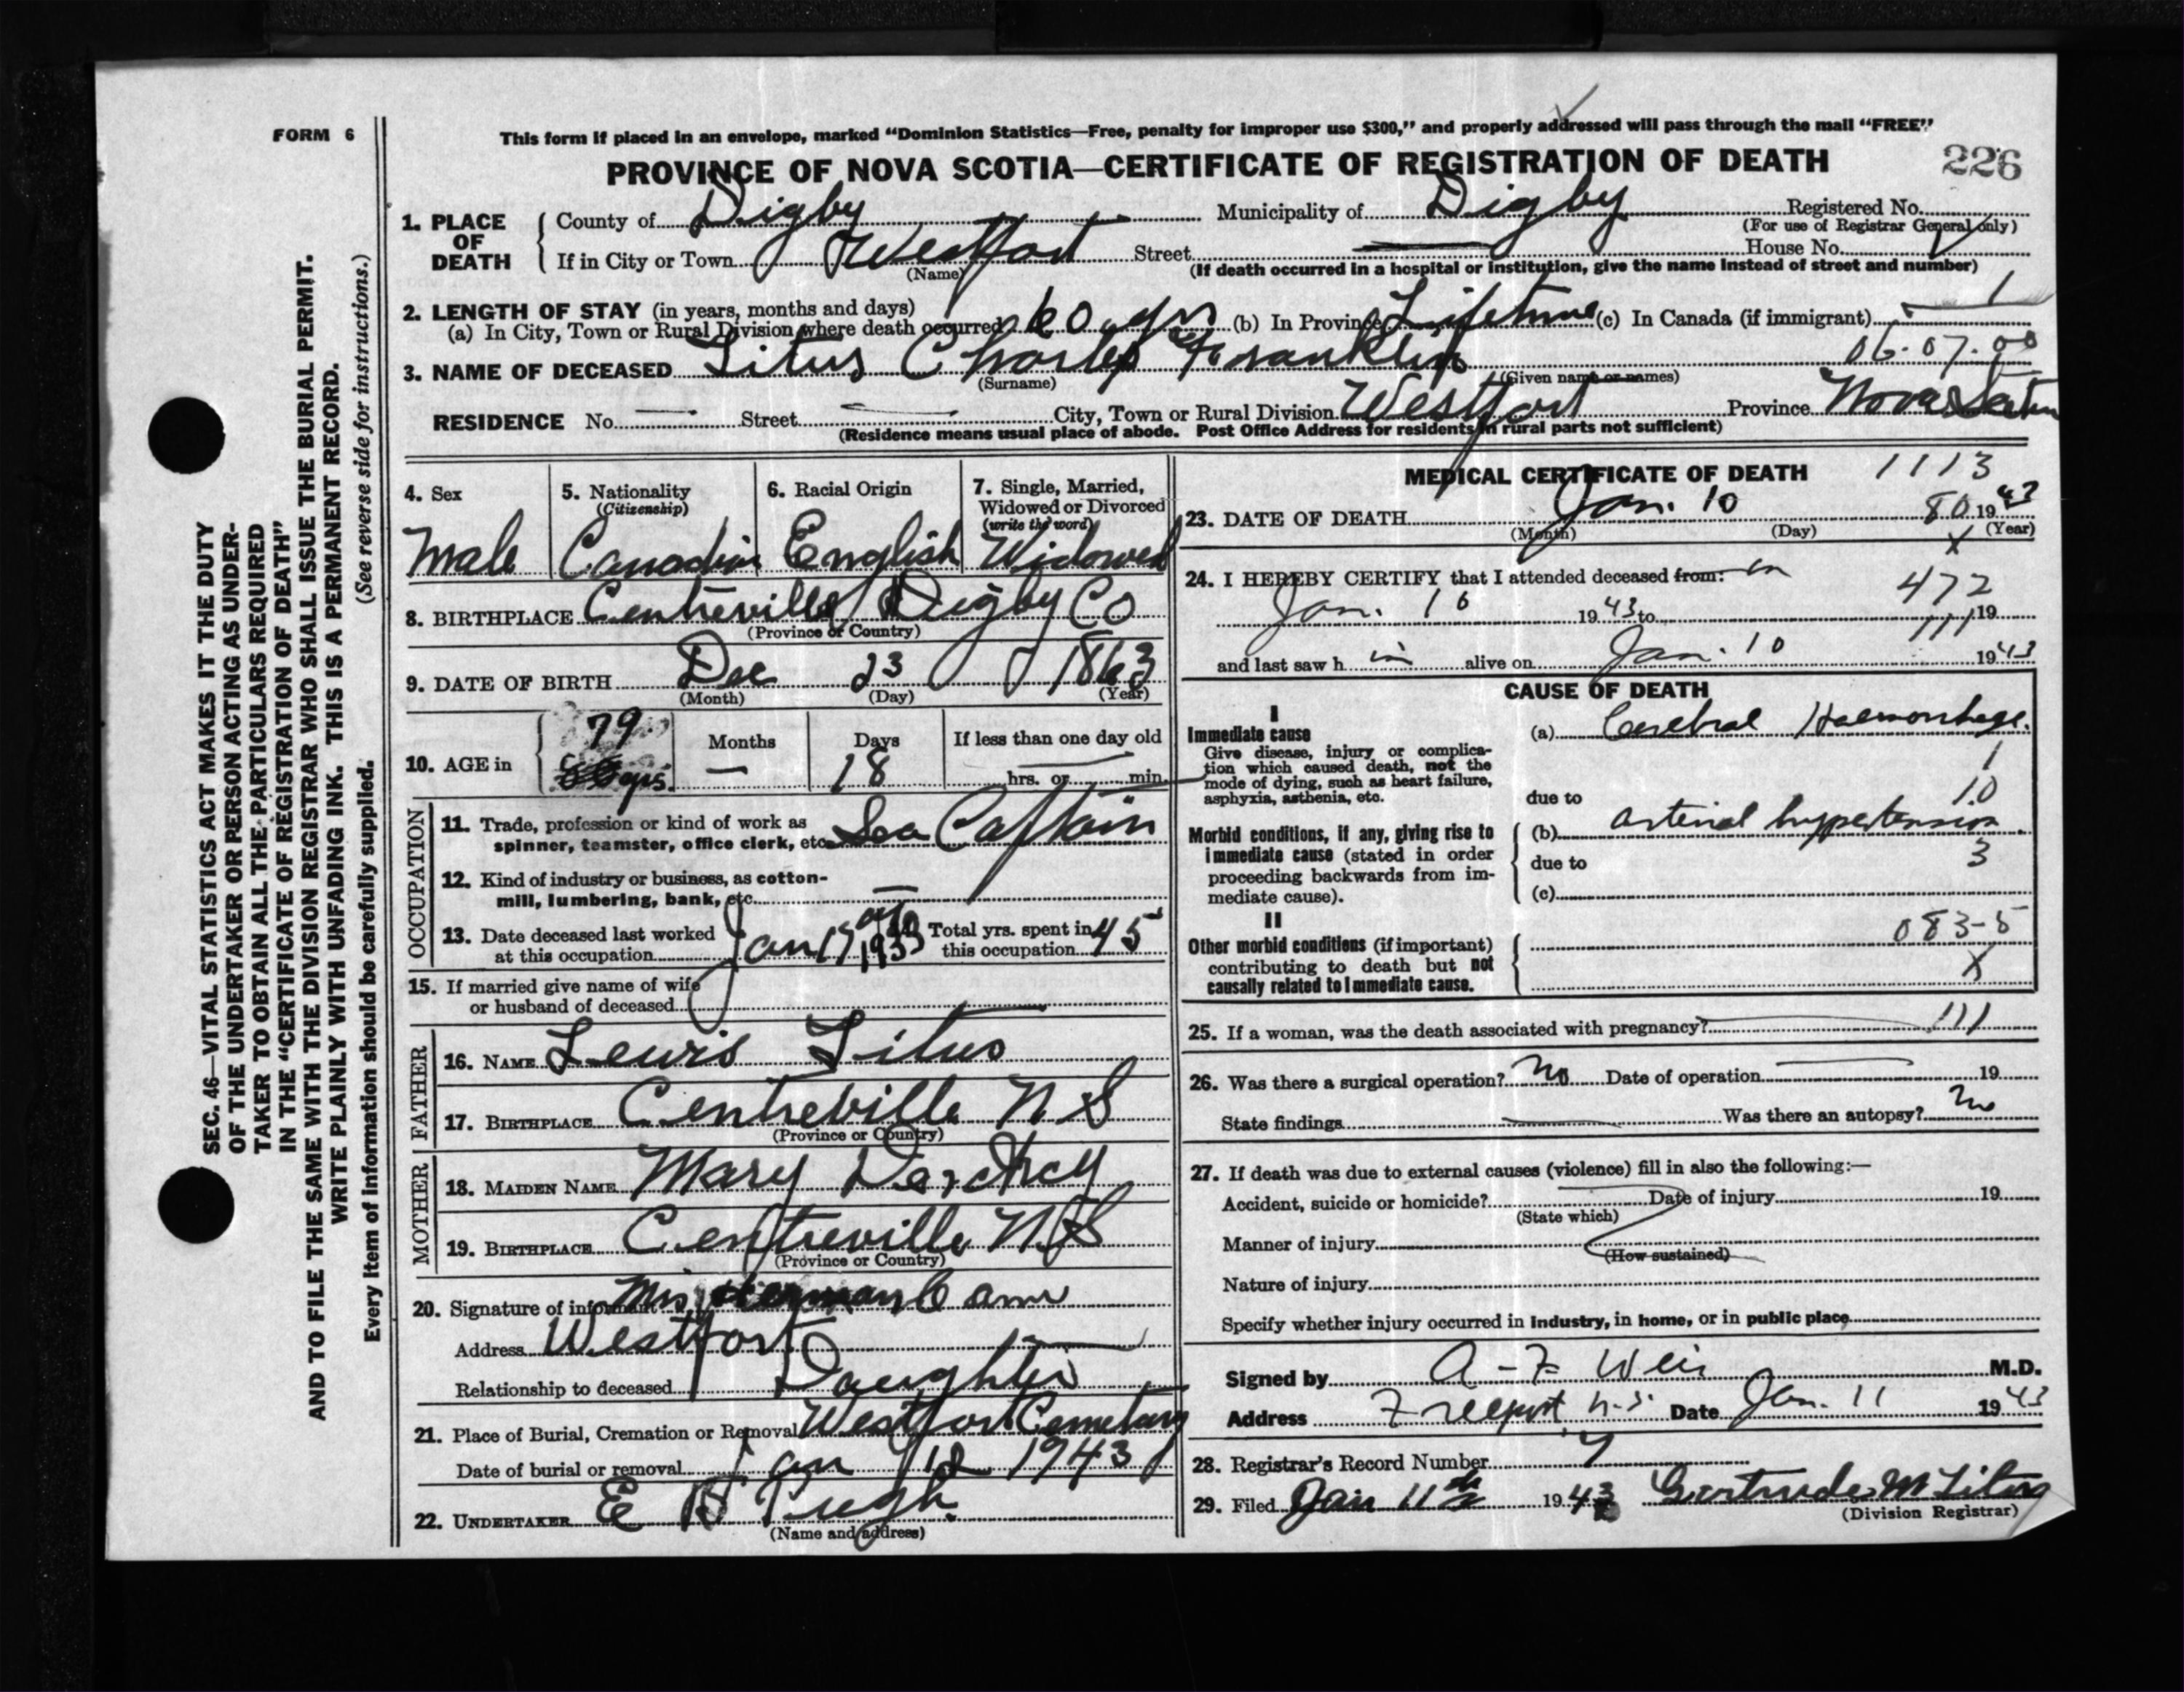 FORM 6
This form if placed in an envelope, marked "Dominion Statistics—Free, penalty for improper use $300," and properly addressed will pass through the mail "FREE"
PROVINCE OF NOVA SCOTIA—CERTIFICATE OF REGISTRATION OF DEATH 226
1. PLACE OF DEATH
County of Digby Municipality of Digby Registered No.
(For use of Registrar General only)
If in City or Town Westport Street House No.
(Name) (If death occurred in a hospital or institution, give the name instead of street and number)
2. LENGTH OF STAY (in years, months and days)
(a) In City, Town or Rural Division where death occurred 60 yrs (b) In Province Lifetime (c) In Canada (if immigrant)
06-07-00
3. NAME OF DECEASED Titus Charles Franklin
(Surname) (Given name or names)
RESIDENCE No. Street City, Town or Rural Division Westport Province Nova Scotia
(Residence means usual place of abode. Post Office Address for residents in rural parts not sufficient)
4. Sex 5. Nationality (Citizenship) 6. Racial Origin 7. Single, Married, Widowed or Divorced (write the word)
Male Canadian English Widowed
8. BIRTHPLACE Centreville Digby Co
(Province or Country)
9. DATE OF BIRTH Dec 23 1863
(Month) (Day) (Year)
10. AGE in 79 yrs. Months — Days 18 If less than one day old hrs. or min.
OCCUPATION
11. Trade, profession or kind of work as spinner, teamster, office clerk, etc. Sea Captain
12. Kind of industry or business, as cotton-mill, lumbering, bank, etc. —
13. Date deceased last worked at this occupation Jan 1933 Total yrs. spent in this occupation 45
15. If married give name of wife or husband of deceased
FATHER
16. NAME Lewis Titus
17. BIRTHPLACE Centreville N S
(Province or Country)
MOTHER
18. MAIDEN NAME Mary
19. BIRTHPLACE Centreville N.S
(Province or Country)
20. Signature of informant Mrs Herman
Address Westport
Relationship to deceased Daughter
21. Place of Burial, Cremation or Removal Westport Cemetary
Date of burial or removal Jan 12 1943
22. UNDERTAKER E H Pugh.
(Name and address)
MEDICAL CERTIFICATE OF DEATH 1113
23. DATE OF DEATH Jan. 10 80 1943
(Month) (Day) (Year)
X
24. I HEREBY CERTIFY that I attended deceased from: on 472
Jan. 10 1943 to 111 19
and last saw h im alive on Jan. 10 1943
CAUSE OF DEATH
I
Immediate cause
Give disease, injury or complication which caused death, not the mode of dying, such as heart failure, asphyxia, asthenia, etc.
(a) Cerebral Haemorrhage.
1
10
due to
Morbid conditions, if any, giving rise to immediate cause (stated in order proceeding backwards from immediate cause).
(b) arterial hypertension
3
due to
(c)
II
Other morbid conditions (if important) contributing to death but not causally related to immediate cause.
083-5
X
25. If a woman, was the death associated with pregnancy? 111
26. Was there a surgical operation? No Date of operation 19
State findings Was there an autopsy? No
27. If death was due to external causes (violence) fill in also the following:—
Accident, suicide or homicide? Date of injury 19
(State which)
Manner of injury
(How sustained)
Nature of injury
Specify whether injury occurred in industry, in home, or in public place
Signed by A-F Weir M.D.
Address Freeport N.S. Date Jan. 11 1943
28. Registrar's Record Number
29. Filed Jan 11th 1943 Gertrude M Titus
(Division Registrar)
SEC. 46—VITAL STATISTICS ACT MAKES IT THE DUTY
OF THE UNDERTAKER OR PERSON ACTING AS UNDER-
TAKER TO OBTAIN ALL THE PARTICULARS REQUIRED
IN THE "CERTIFICATE OF REGISTRATION OF DEATH"
AND TO FILE THE SAME WITH THE DIVISION REGISTRAR WHO SHALL ISSUE THE BURIAL PERMIT.
WRITE PLAINLY WITH UNFADING INK. THIS IS A PERMANENT RECORD.
(See reverse side for instructions.)
Every item of information should be carefully supplied.